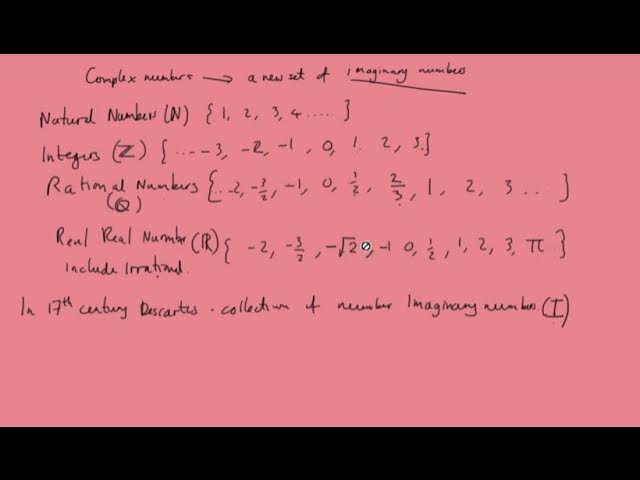 Complex numbers → a new set of imaginary numbers
Natural Numbers (N) { 1, 2, 3, 4 ..... }
Integers (ℤ) { ... -3, -2, -1, 0, 1, 2, 3.}
Rational Numbers {.. -2, -3/2, -1, 0, 1/2, 2/3, 1, 2, 3 ... }
(ℚ)
Real Real Number (ℝ) { -2, -3/2, -√2, -1 0, 1/2, 1, 2, 3, π }
include Irrational.
In 17th century Descartes . collection of number Imaginary numbers. (I)